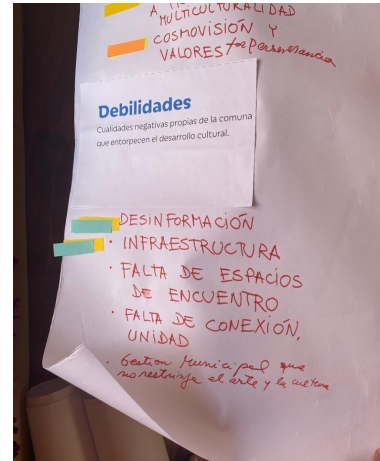 MULTICULTURALIDAD
COSMOVISIÓN Y
VALORES for perseverancia
Debilidades
Cualidades negativas propias de la comuna
que entorpecen el desarrollo cultural.
DESINFORMACIÓN
· INFRAESTRUCTURA
· FALTA DE ESPACIOS
DE ENCUENTRO
· FALTA DE CONEXIÓN,
UNIDAD
· Gestion Municipal que
no restrinja el arte y la cultura